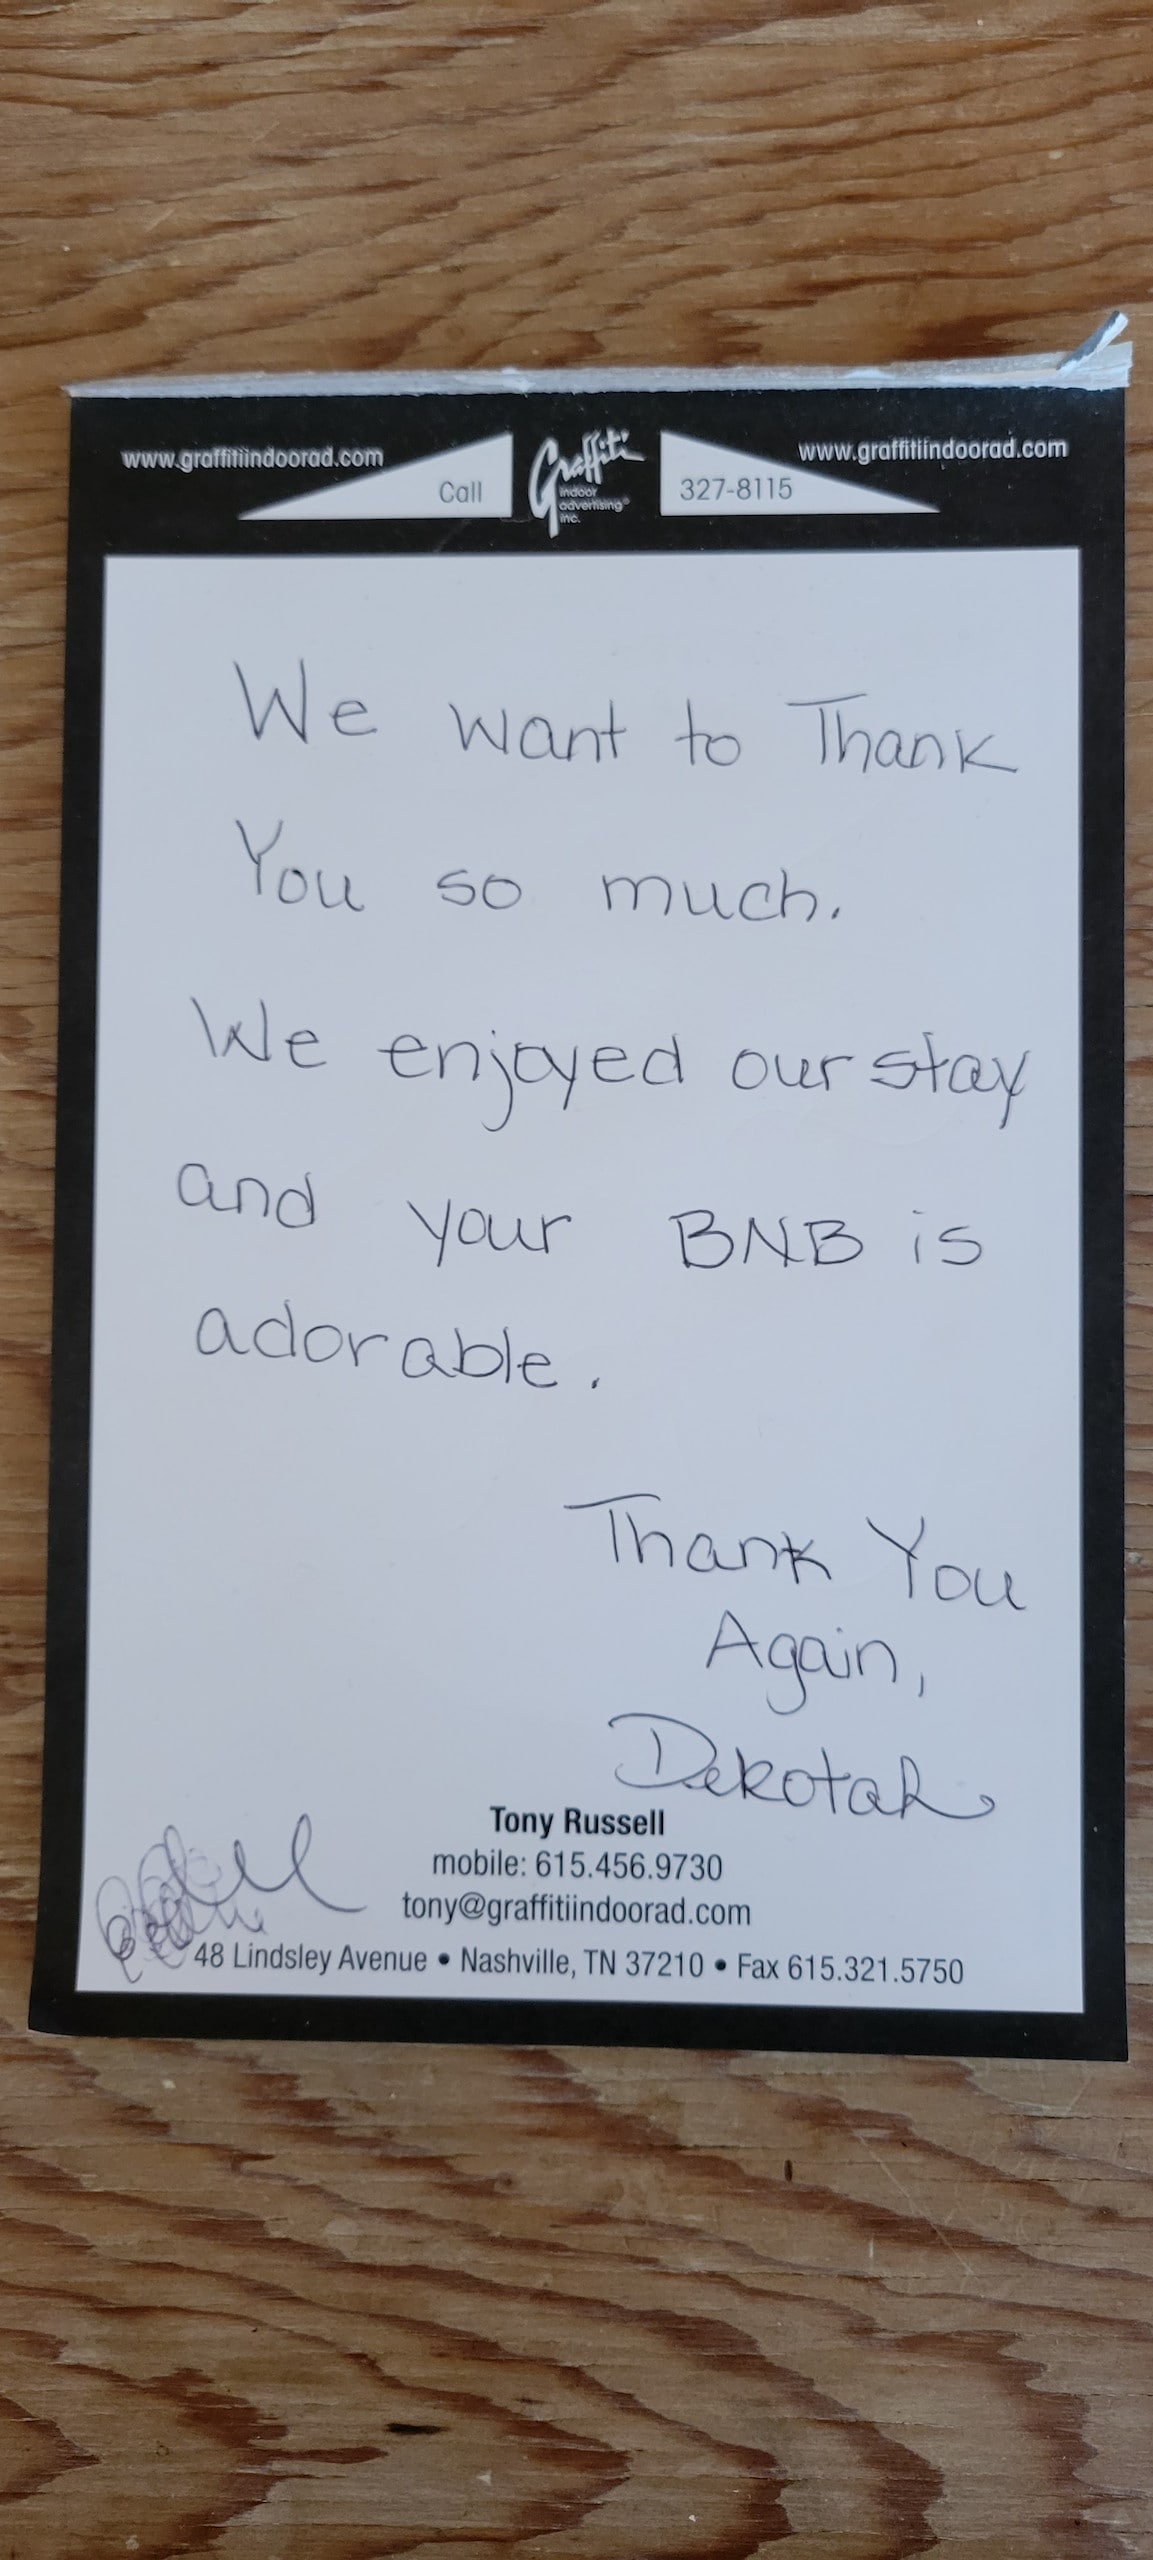 www.graffitiindoorad.com
Call
Graffiti
indoor
advertising®
inc.
327-8115
www.graffitiindoorad.com
We want to Thank
You so much.
We enjoyed our stay
and your BNB is
adorable.
Thank You
Again,
Dekotah
Tony Russell
mobile: 615.456.9730
tony@graffitiindoorad.com
48 Lindsley Avenue • Nashville, TN 37210 • Fax 615.321.5750